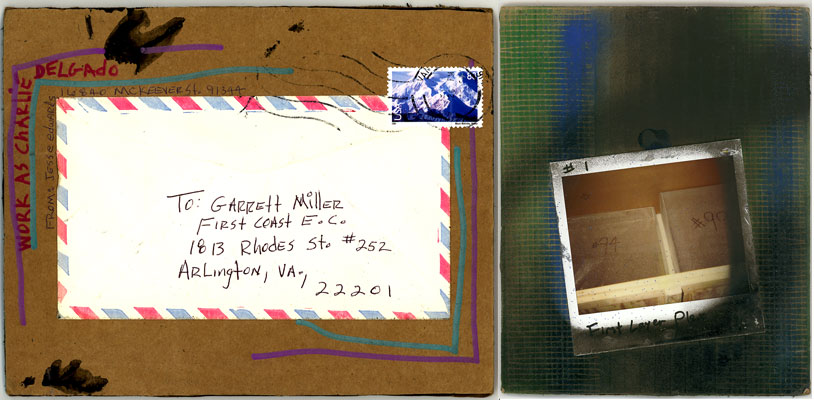 WORK AS CHARLIE DELGADO
FROM: JESSE EDWARDS
16840 MCKEEVER St. 91344
USA
To: GARRETT MILLER
FIRST COAST E.C.
1813 RHODES St. #252
ARLINGTON, VA.,
22201
#1
#94
First Layer